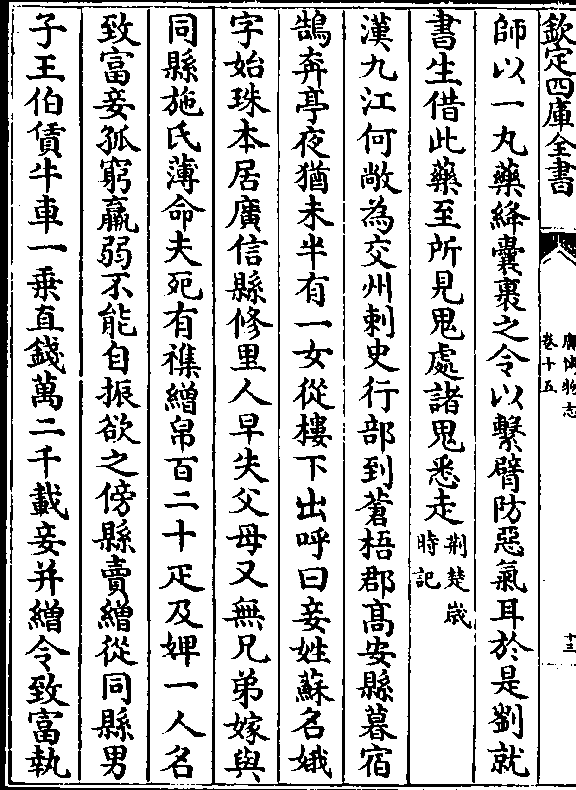 欽定四庫全書
廣博物志
卷十五
十三
師以一丸藥絳囊裹之令以繫臂防惡氣耳於是劉就
書生借此藥至所見鬼處諸鬼悉走荆楚歲時記
漢九江何敞為交州刺史行部到蒼梧郡高安縣暮宿
鵠奔亭夜猶未半有一女從樓下出呼曰妾姓蘇名娥
字始珠本居廣信縣修里人早失父母又無兄弟嫁與
同縣施氏薄命夫死有襍繒帛百二十疋及婢一人名
致富妾孤窮羸弱不能自振欲之傍縣賣繒從同縣男
子王伯賃牛車一乗直錢萬二千載妾并繒令致富執